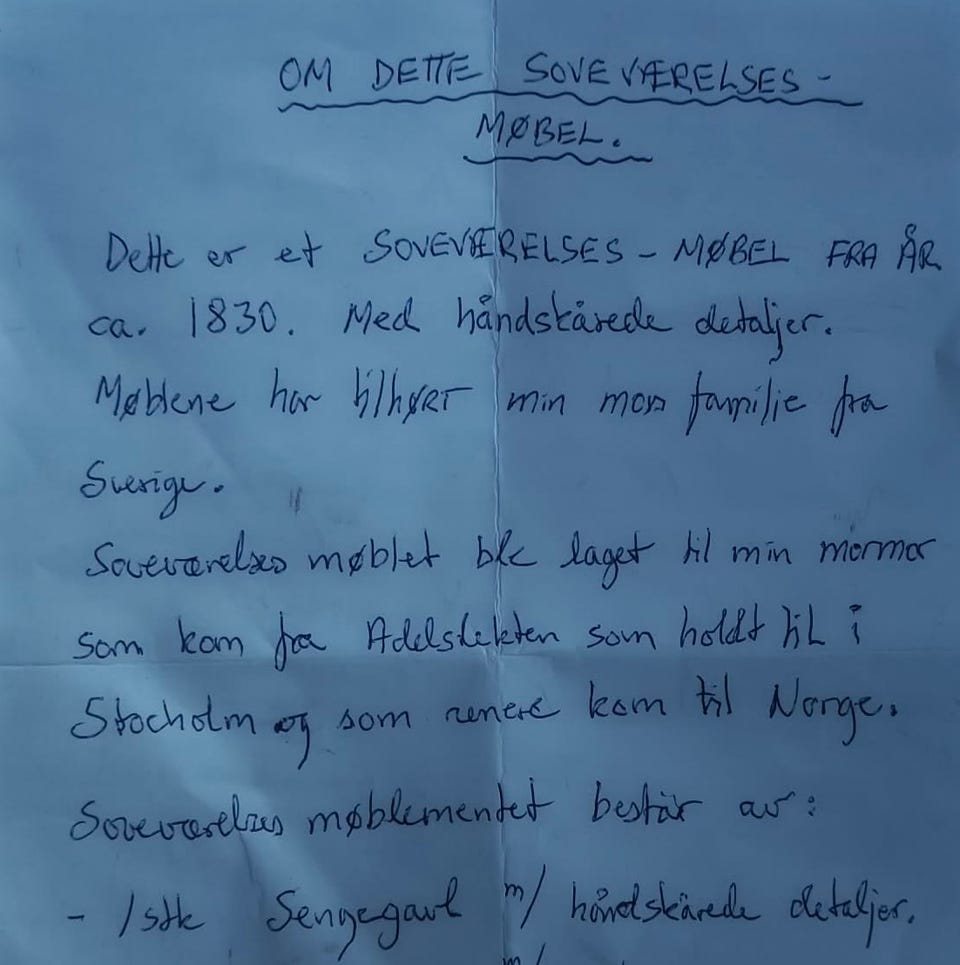 OM DETTE SOVEVÆRELSES -
MØBEL.
Dette er et SOVEVÆRELSES - MØBEL FRA ÅR
ca. 1830. Med håndskårede detaljer.
Møblene har tilhørt min mors familie fra
Sverige.
Soveværelses møblet ble laget til min mormor
som kom fra Adelslekten som holdt til i
Stocholm og som senere kom til Norge.
Soveværelses møblementet består av:
- 1stk Sengegavl m/ håndskårede detaljer.
m/